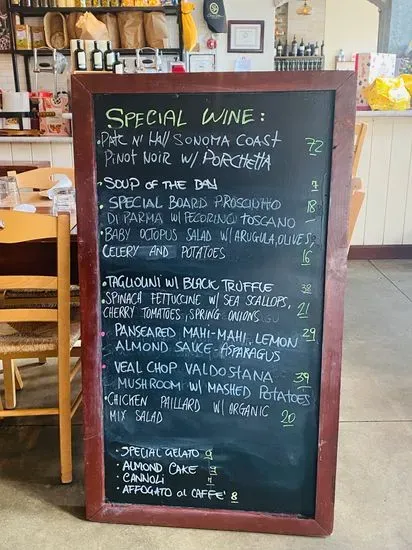 SPECIAL WINE:
• Pate N' Hall SONOMA COAST
PINOT NOIR W/ PORCHETTA 72
• SOUP OF THE DAY 7
• SPECIAL BOARD PROSCIUTTO 18
DI PARMA W/ PECORINO TOSCANO
• BABY OCTOPUS SALAD W/ ARUGULA, OLIVES,
CELERY AND POTATOES 16
• TAGLIOLINI W/ BLACK TRUFFLE 38
• SPINACH FETTUCCINE W/ SEA SCALLOPS,
CHERRY TOMATOES, SPRING ONIONS 21
• PANSEARED MAHI-MAHI, LEMON 29
ALMOND SAUCE - ASPARAGUS
• VEAL CHOP VALDOSTANA 39
MUSHROOM W/ MASHED POTATOES
• CHICKEN PAILLARD W/ ORGANIC
MIX SALAD 20
• SPECIAL GELATO 9
• ALMOND CAKE 7
• CANNOLI
• AFFOGATO al CAFFE' 8